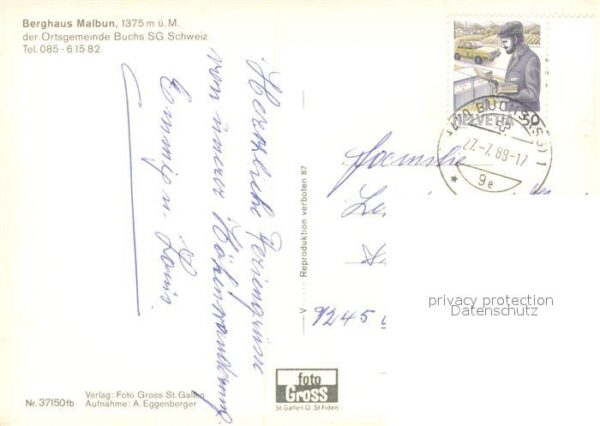 Berghaus Malbun, 1375 m ü. M.
der Ortsgemeinde Buchs SG Schweiz
Tel. 085 - 6 15 82
Herzliche Feriengrüsse
von unserer Höhenwanderung.
Emmy u. Louis
V Reproduktion verboten 87
HELVETIA
BUCHS (SG) 1
27.-7.88-17
9e
Familie
9245
privacy protection
Datenschutz
foto
Gross
St. Gallen O. St Fiden
Nr. 37150 fb
Verlag: Foto Gross St. Gallen
Aufnahme: A. Eggenberger